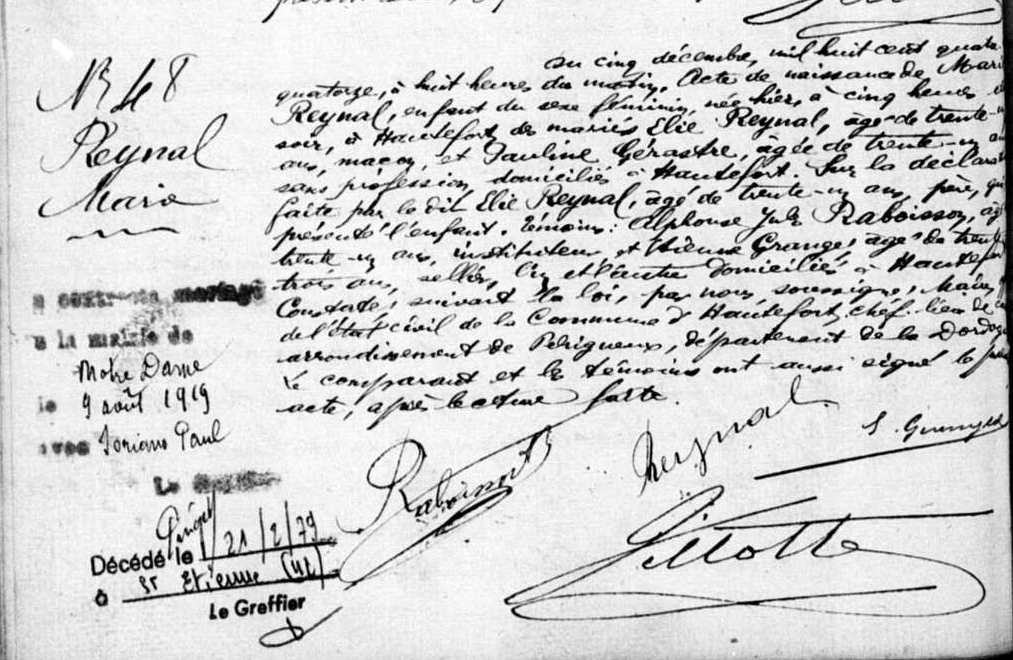 N° 48
Reynal
Marie
a contracté mariage
à la mairie de
Notre Dame
le 9 août 1919
avec Soriano Paul
Le Greffier
Décédé le 21/2/79
à St Etienne (42)
Le Greffier
au cinq décembre, mil huit cent quatre
quatorze, à huit heures du matin. Acte de naissance de Marie
Reynal, enfant du sexe féminin, née hier, à cinq heures
soir, à Hautefort, des mariés Elie Reynal, âgé de trente-
ans, maçon, et Pauline Gérastre, âgée de trente-un
sans profession, domiciliés à Hautefort. Sur la déclarat
faite par le dit Elie Reynal, âgé de trente-un ans, père, qui
présenté l'enfant. Témoins: Alphonse Jules Raboisson, âg
trente-un ans, instituteur et Etienne Granger âgé de trente
trois ans, sellier, l'un et l'autre domiciliés à Hautefort
Constaté, suivant la loi, par nous, soussigné, Maire,
de l'état civil de la Commune d'Hautefort, chef-lieu de
arrondissement de Périgueux, département de la Dordog
Le comparant et les témoins ont aussi signé le pré
acte, après lecture faite.
Raboisson
Reynal
E. Granger